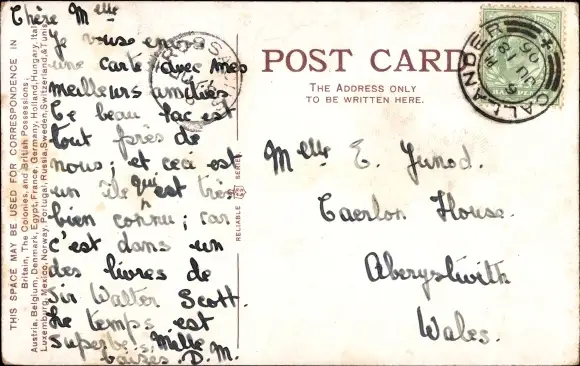 THIS SPACE MAY BE USED FOR CORRESPONDENCE IN
Britain, The Colonies, and British Possessions;
Austria, Belgium, Denmark, Egypt, France, Germany, Holland, Hungary, Italy
Luxemburg, Mexico, Norway, Portugal, Russia, Sweden, Switzerland, & Tunis
Chère Melle
Je vouse envoie
une carte avec mes
meilleurs amitiés
Ce beau lac est
tout près de
nous; et ceci est
un île qui est très
bien connu; car
c'est dans un
des livres de
Sir Walter Scott.
Le temps est
superbe. Mille
baizes. D. M.
RELIABLE SERIES
POST CARD
THE ADDRESS ONLY
TO BE WRITTEN HERE.
CALLANDER
JU 18
06
HALFPENNY
Melle E. Junod.
Caerlon House.
Aberystwith
Wales.